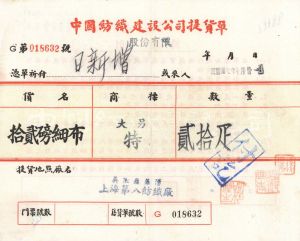 中國紡織建設公司提貨單
股份有限
G 第 018632 號
年 月 日
憑單祈付 日新增 或來人
貨名 商標 數量
拾貳磅細布 大 特 貳拾疋
提貨地點廠名
上海第八紡織廠
門票號數 總貨單號數 G 018632